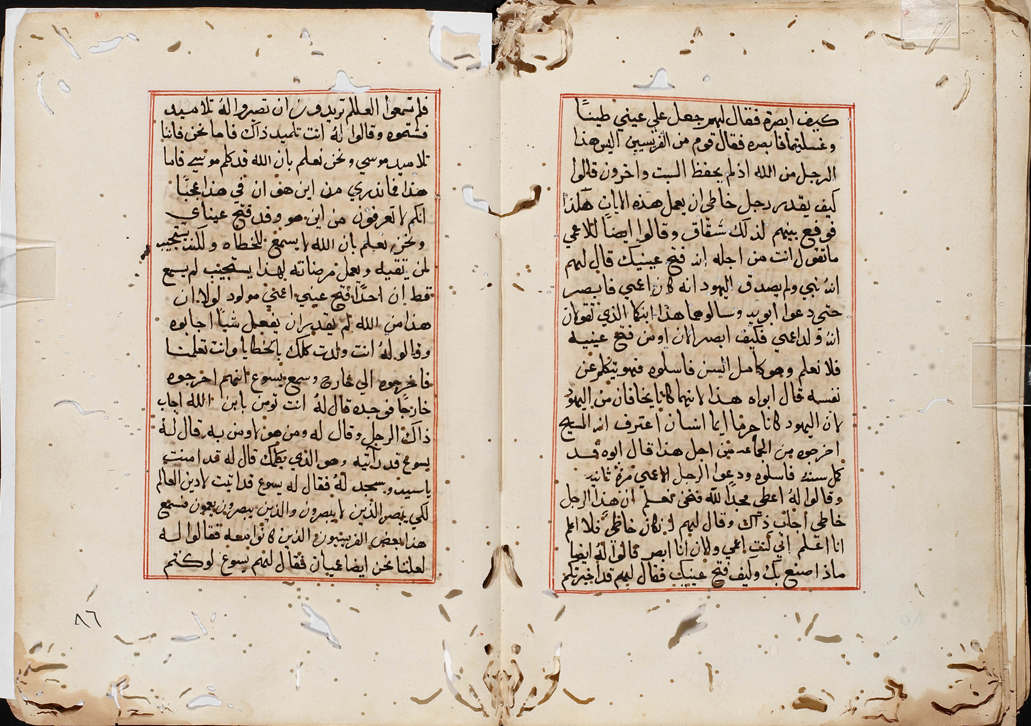 كيف ابصرة فقال لهم جعل علي عيني طينًا
وغسلتهما فابصره فقال قوم من الفريسيين اليس هذا
الرجل من الله اذ لم يحفظ السبت واخرون قالوا
كيف يقدر رجل خاطي ان يعمل هذه الايات هكذا
فوقع بينهم لذلك شقاق وقالوا ايضًا للاعمي
ما تقول انت من اجله انه فتح عينيك قال لهم
انه نبي ولم يصدق اليهود انه كان اعمي فابصر
حتي دعوا ابويه وسالوهما هذا ابنكما الذي تقولان
انه ولد اعمي فكيف ابصر الان اوس فتح عينيه
فلا نعلم وهو كامل السن فاسلوه فهو يتكلم عن
نفسه قال ابواه هذا لانهما كانا يخافان من اليهود
لان اليهود كانا جزما ايما انسان اعترف انه المسيح
اخرجوه من الجماعه من اجل هذا قال ابوه قد
كمل سنه فاسلوه ودعوا الرجل الاعمي مرة ثانيه
وقالوا له اعطي مجدًا لله فنحن نعلم ان هذا الرجل
خاطي اجاب ذاك وقال لهم ان كان خاطي فلا اعلم
انا اعلم اني كنت اعمي والان انا ابصر قالوا له ايضا
ماذا صنع بك وكيف فتح عينيك فقال لهم قد اخبرتكم
فلم تسمعوا العلكم تريدون ان تصيروا له تلاميد
فشتموه وقالوا له انت تلميد ذاك فاما نحن فاننا
تلاميد موسي ونحن نعلم بان الله قد كلم موسي فاما
هذا فما ندري من اين هو ان في هذا عجبًا
انكم لا تعرفون من اين هو وقد فتح عيناي
ونحن نعلم بان الله لا يسمع للخطاه ولكنه يستجيب
لمن يتقيه ويعمل مرضاته لهذا يستجيب لم يسمع
قط ان احدًا فتح عيني اعمي مولود لولا ان
هذا من الله لم يقدر ان يفعل شيا اجابوه
وقالو له انت ولدت كلك بالخطايا وانت تعلمنا
فاخرجوه الي خارج وسمع يسوع انهم اخرجوه
خارجًا فوجده قال له انت تومن بابن الله اجاب
ذاك الرجل وقال له ومن هو لاومن به قال له
يسوع قد رايته وهو الذي يكلمك قال له قد امنت
يا سيد وسجد له فقال له يسوع قد اتيت لادين العالم
لكي يبصر الذين لا يبصرون والذين يبصرون يعمون فسمع
هذا بعض الفريسيون الذين كانوا معه فقالوا له
لعلنا نحن ايضا عميان فقال لهم يسوع لو كنتم
٨٦